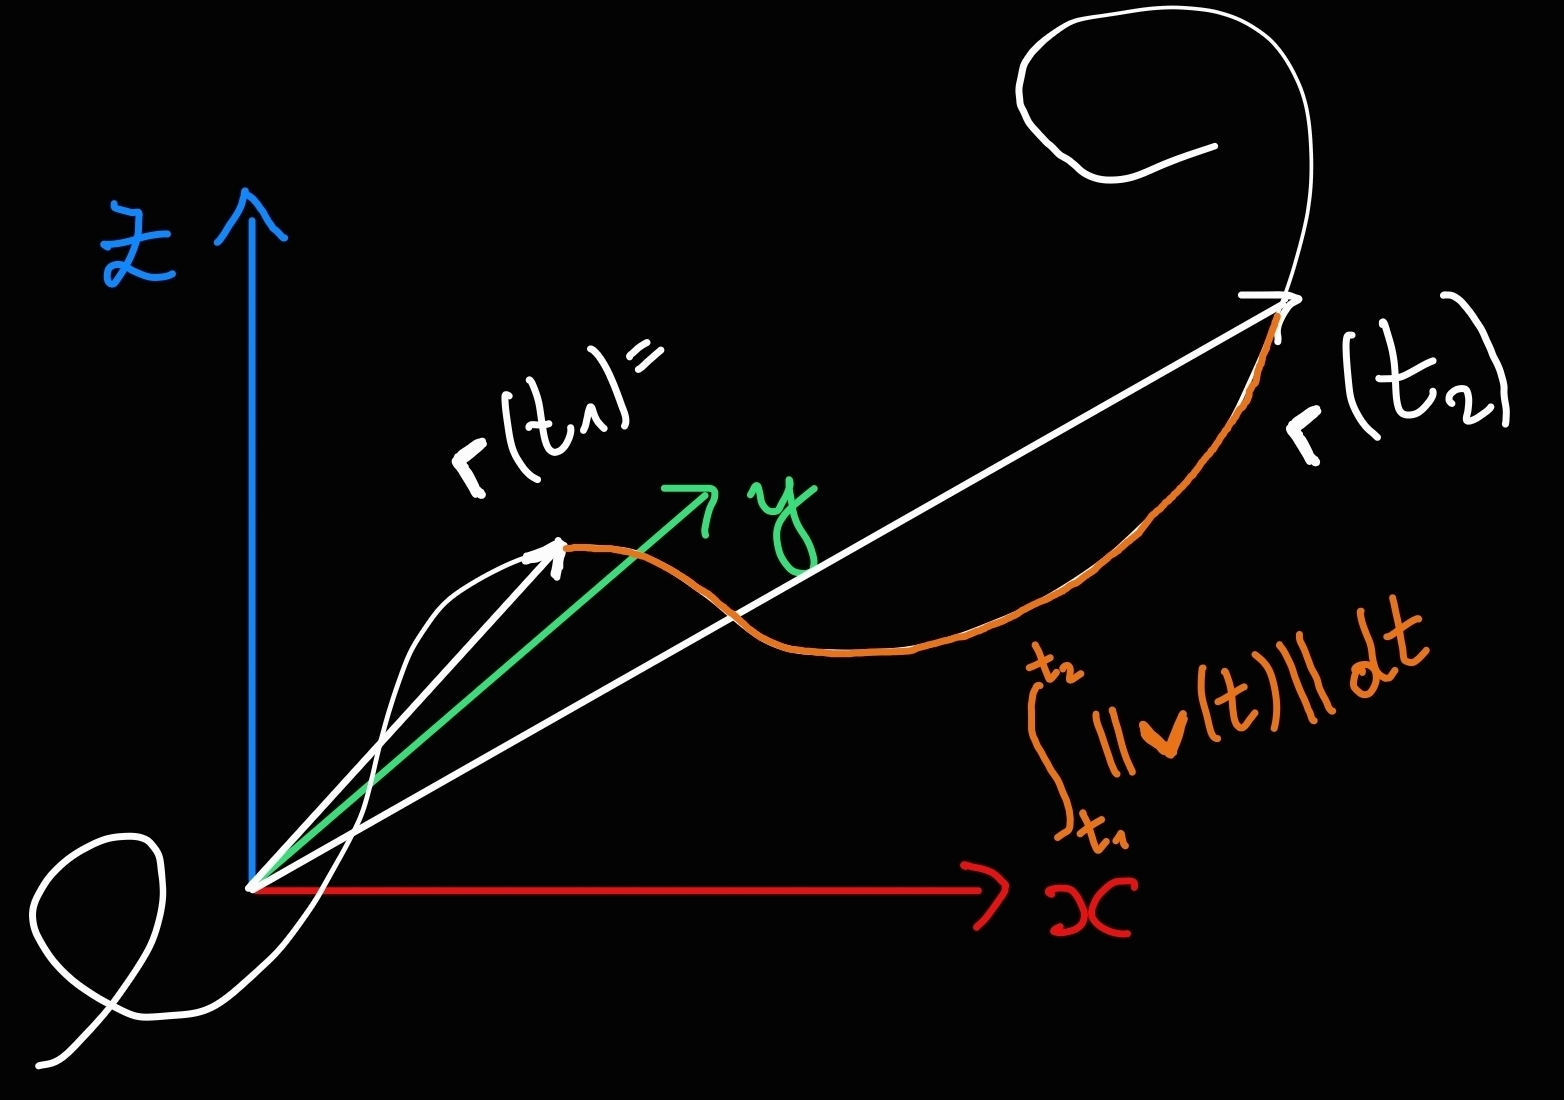 z
r(t₁)=
r(t₂)
y
∫ₜ₁ᵗ² ||v(t)|| dt
x